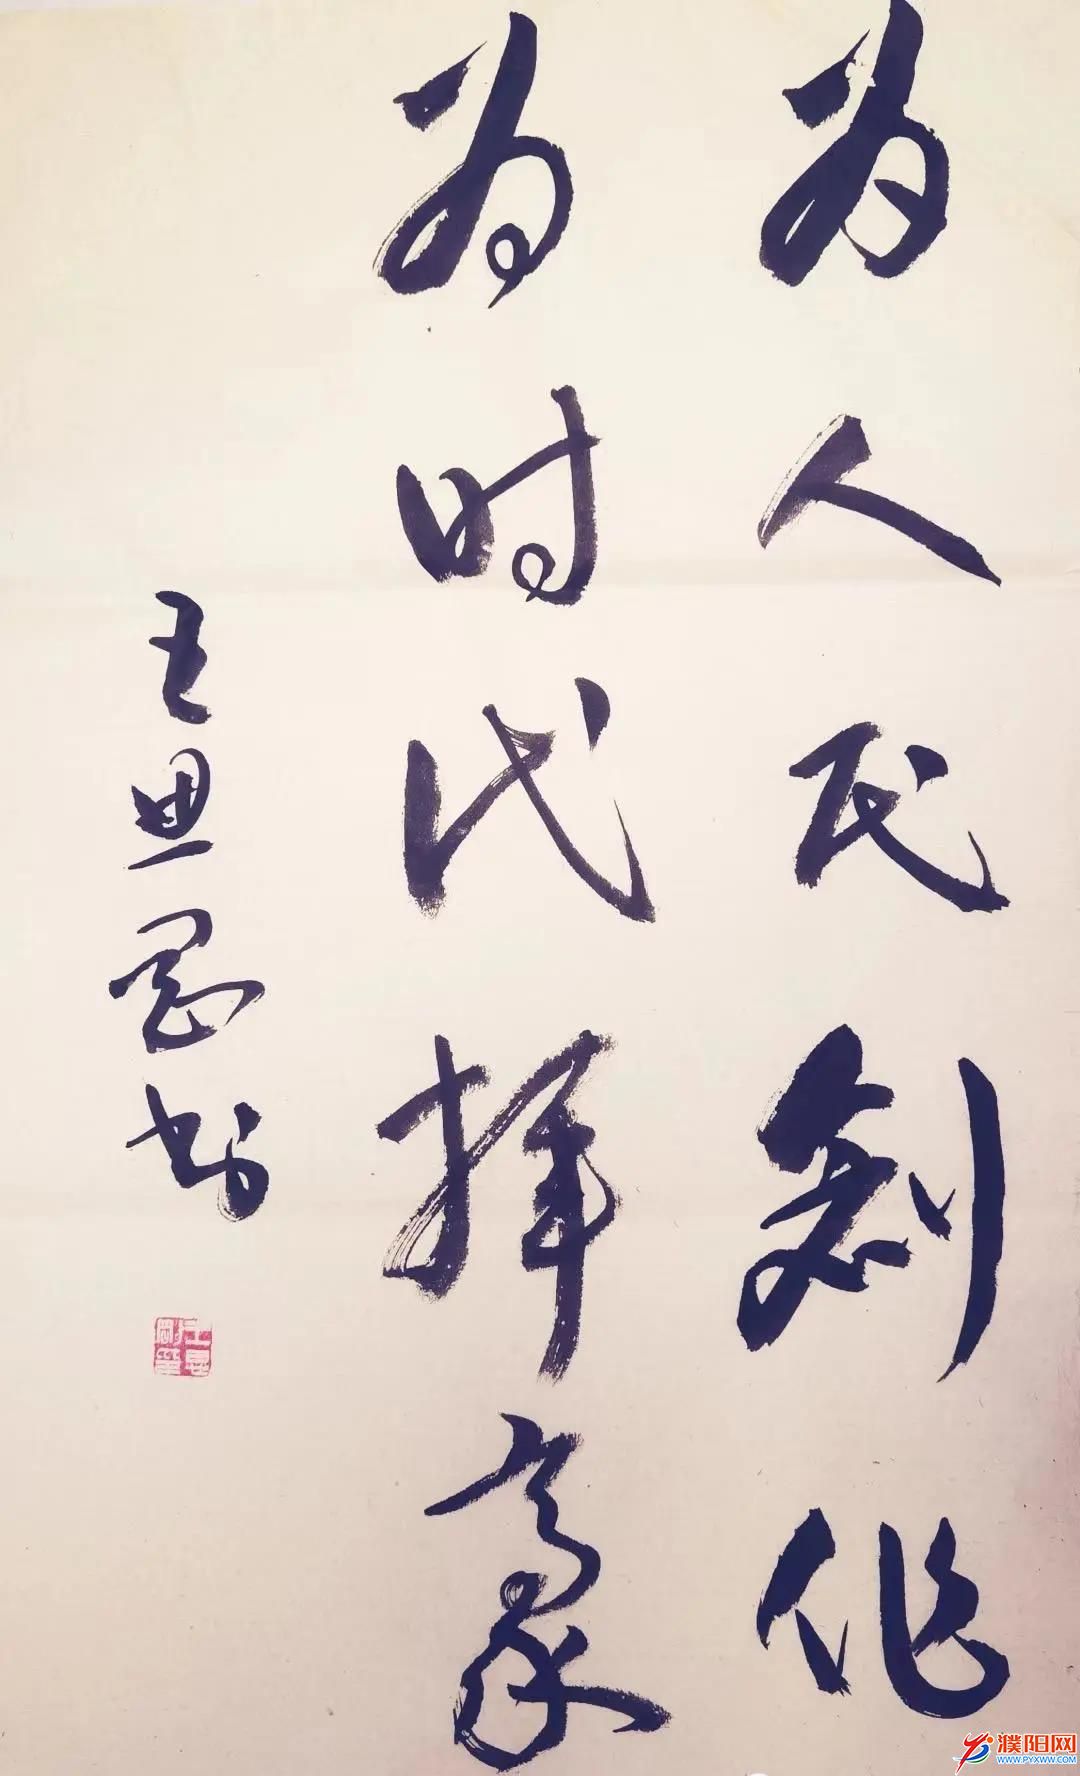 为人民創作
为时代挥豪
王 书
濮阳网
WWW.PYXWW.COM